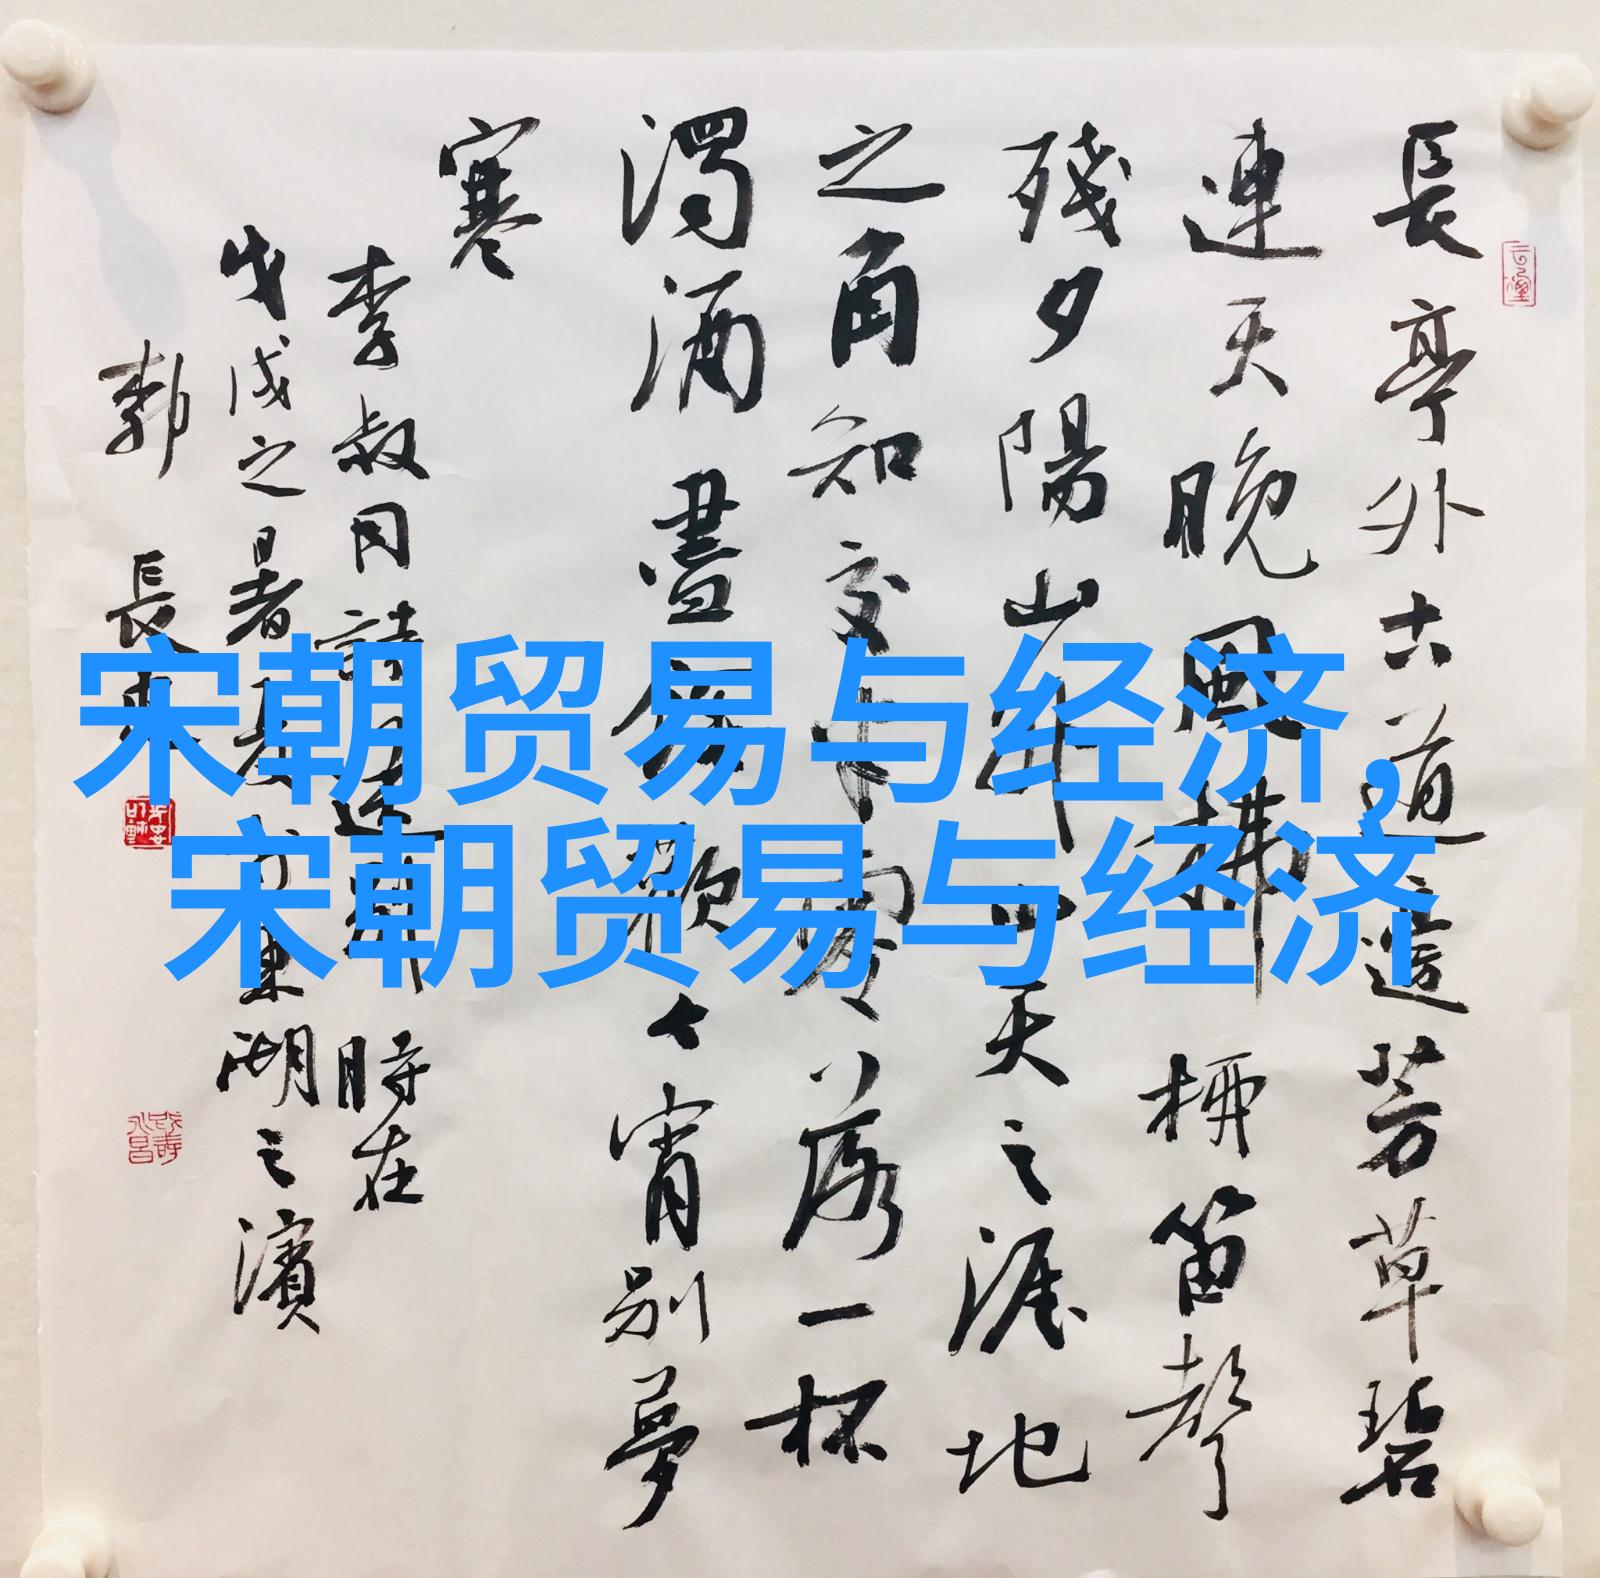 長亭外古道邊芳草碧
連天晚風拂柳笛聲
殘夕陽山外山天之涯地
之角知交半零落一杯
濁酒盡餘歡今宵別夢
寒
李叔同詩送別 時在
戊戌之暑 東湖之濱
宋朝贸易与经济,
宋朝贸易与经济